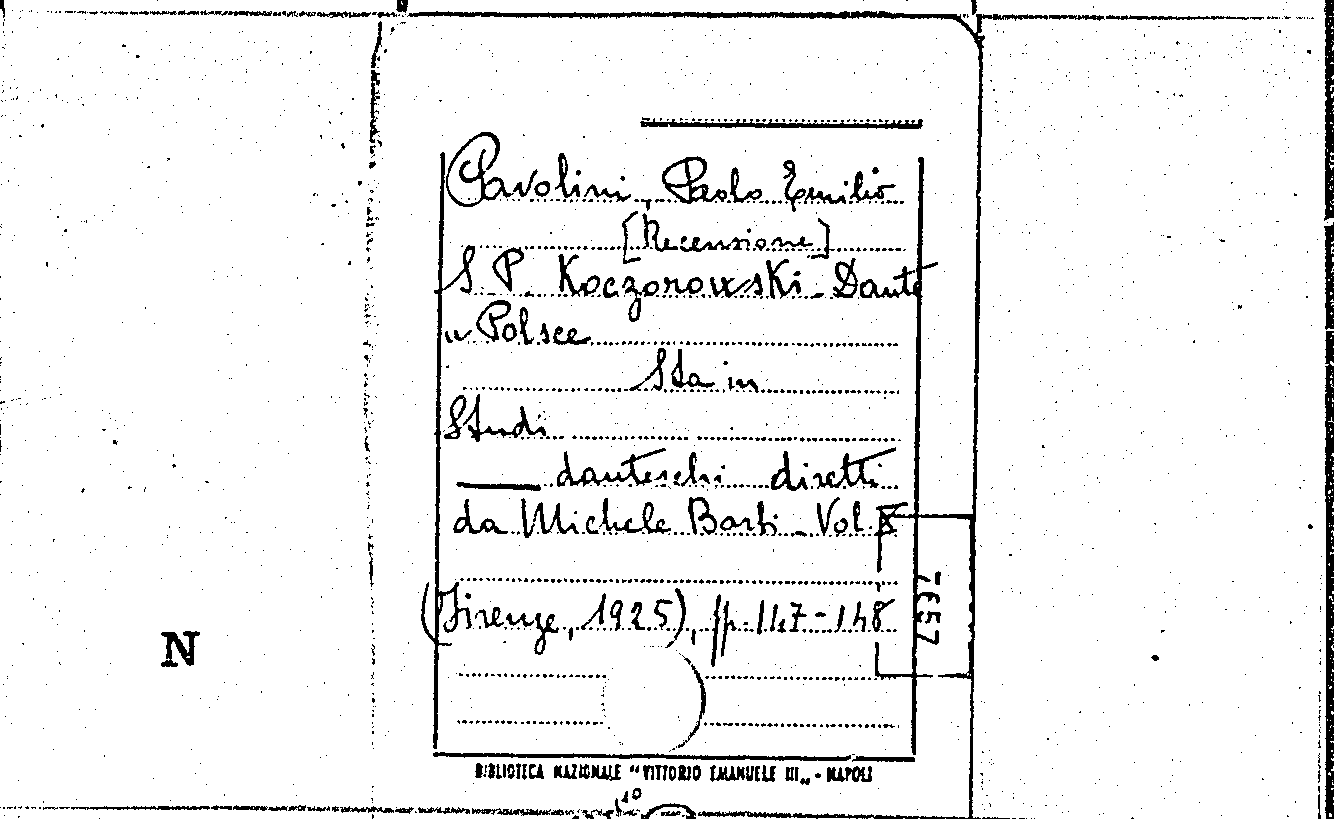 Pavolini, Paolo Emilio
[Recensione]
S. P. Koczorowski - Dante
w Polsce
Sta in
Studi
danteschi diretti
da Michele Barbi - Vol. X
(Firenze, 1925), pp. 147-148
7657
N
BIBLIOTECA NAZIONALE "VITTORIO EMANUELE III„ - NAPOLI